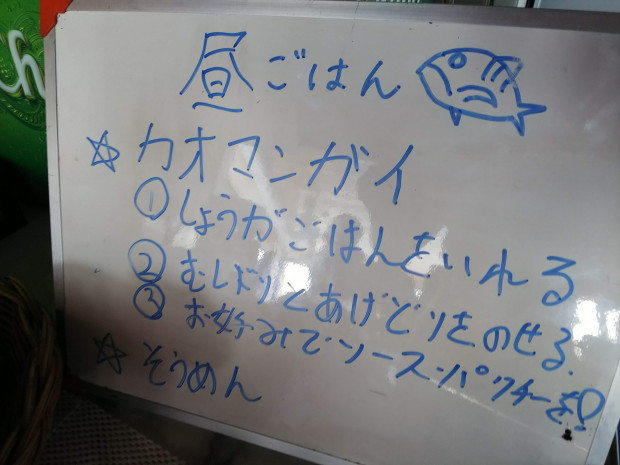 昼ごはん
☆カオマンガイ
①しょうがごはんをいれる
②むしどりとあげどりをのせる.
③お好みでソース・パクチーを!
☆そうめん